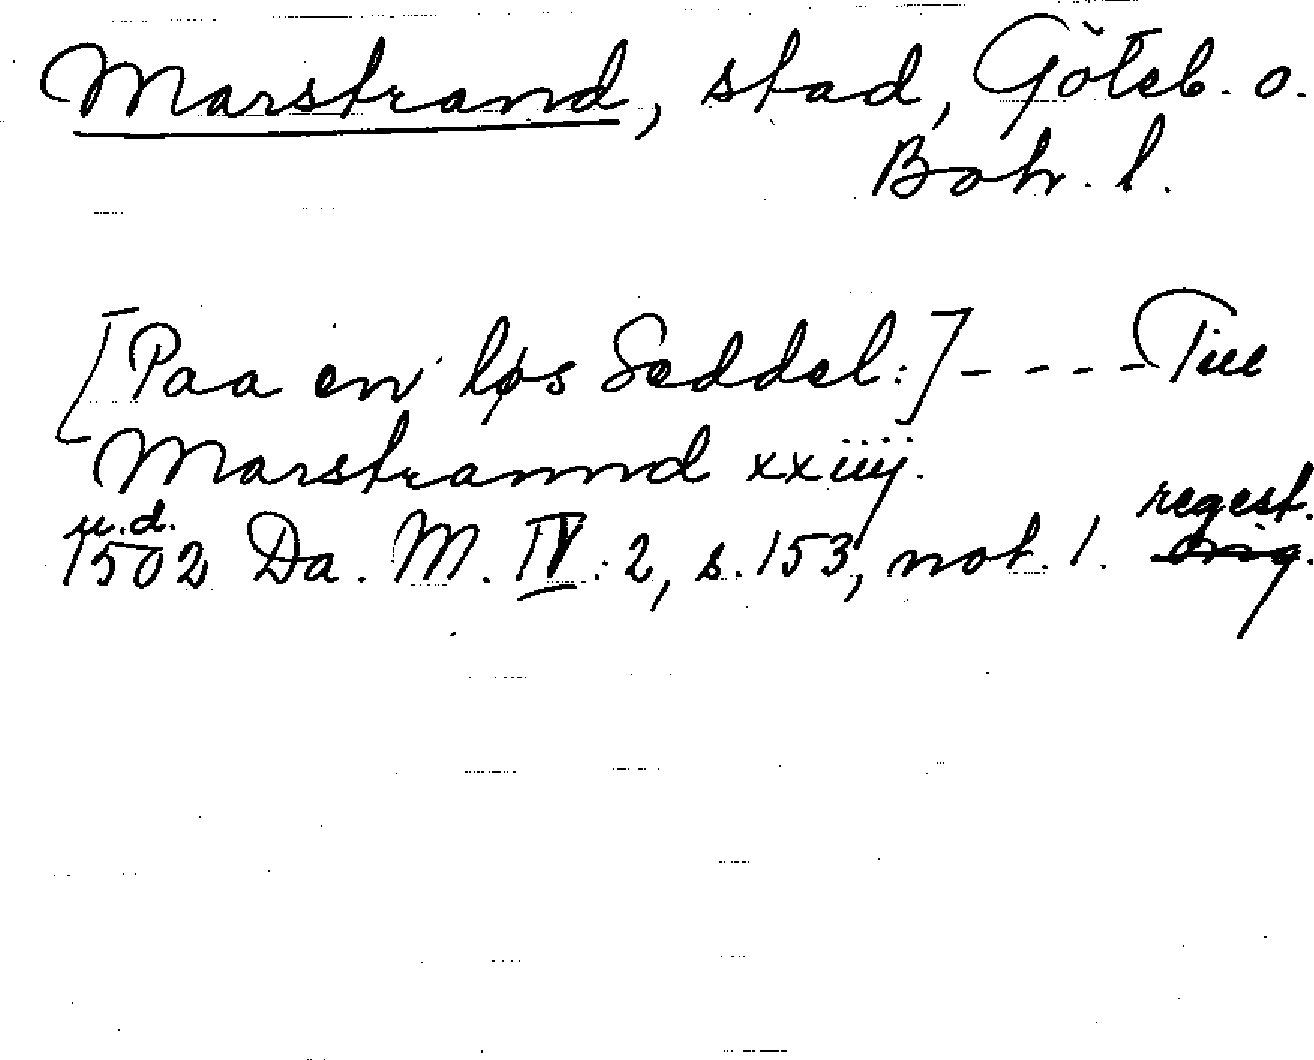 Marstrand, stad, Göteb. o.
Boh. l.
[Paa en løs Seddel:] - - - - Till
Marstrannd xxiiij.
u.d. regest.
1502 Da. M. IV: 2, s. 153, not. 1. orig.